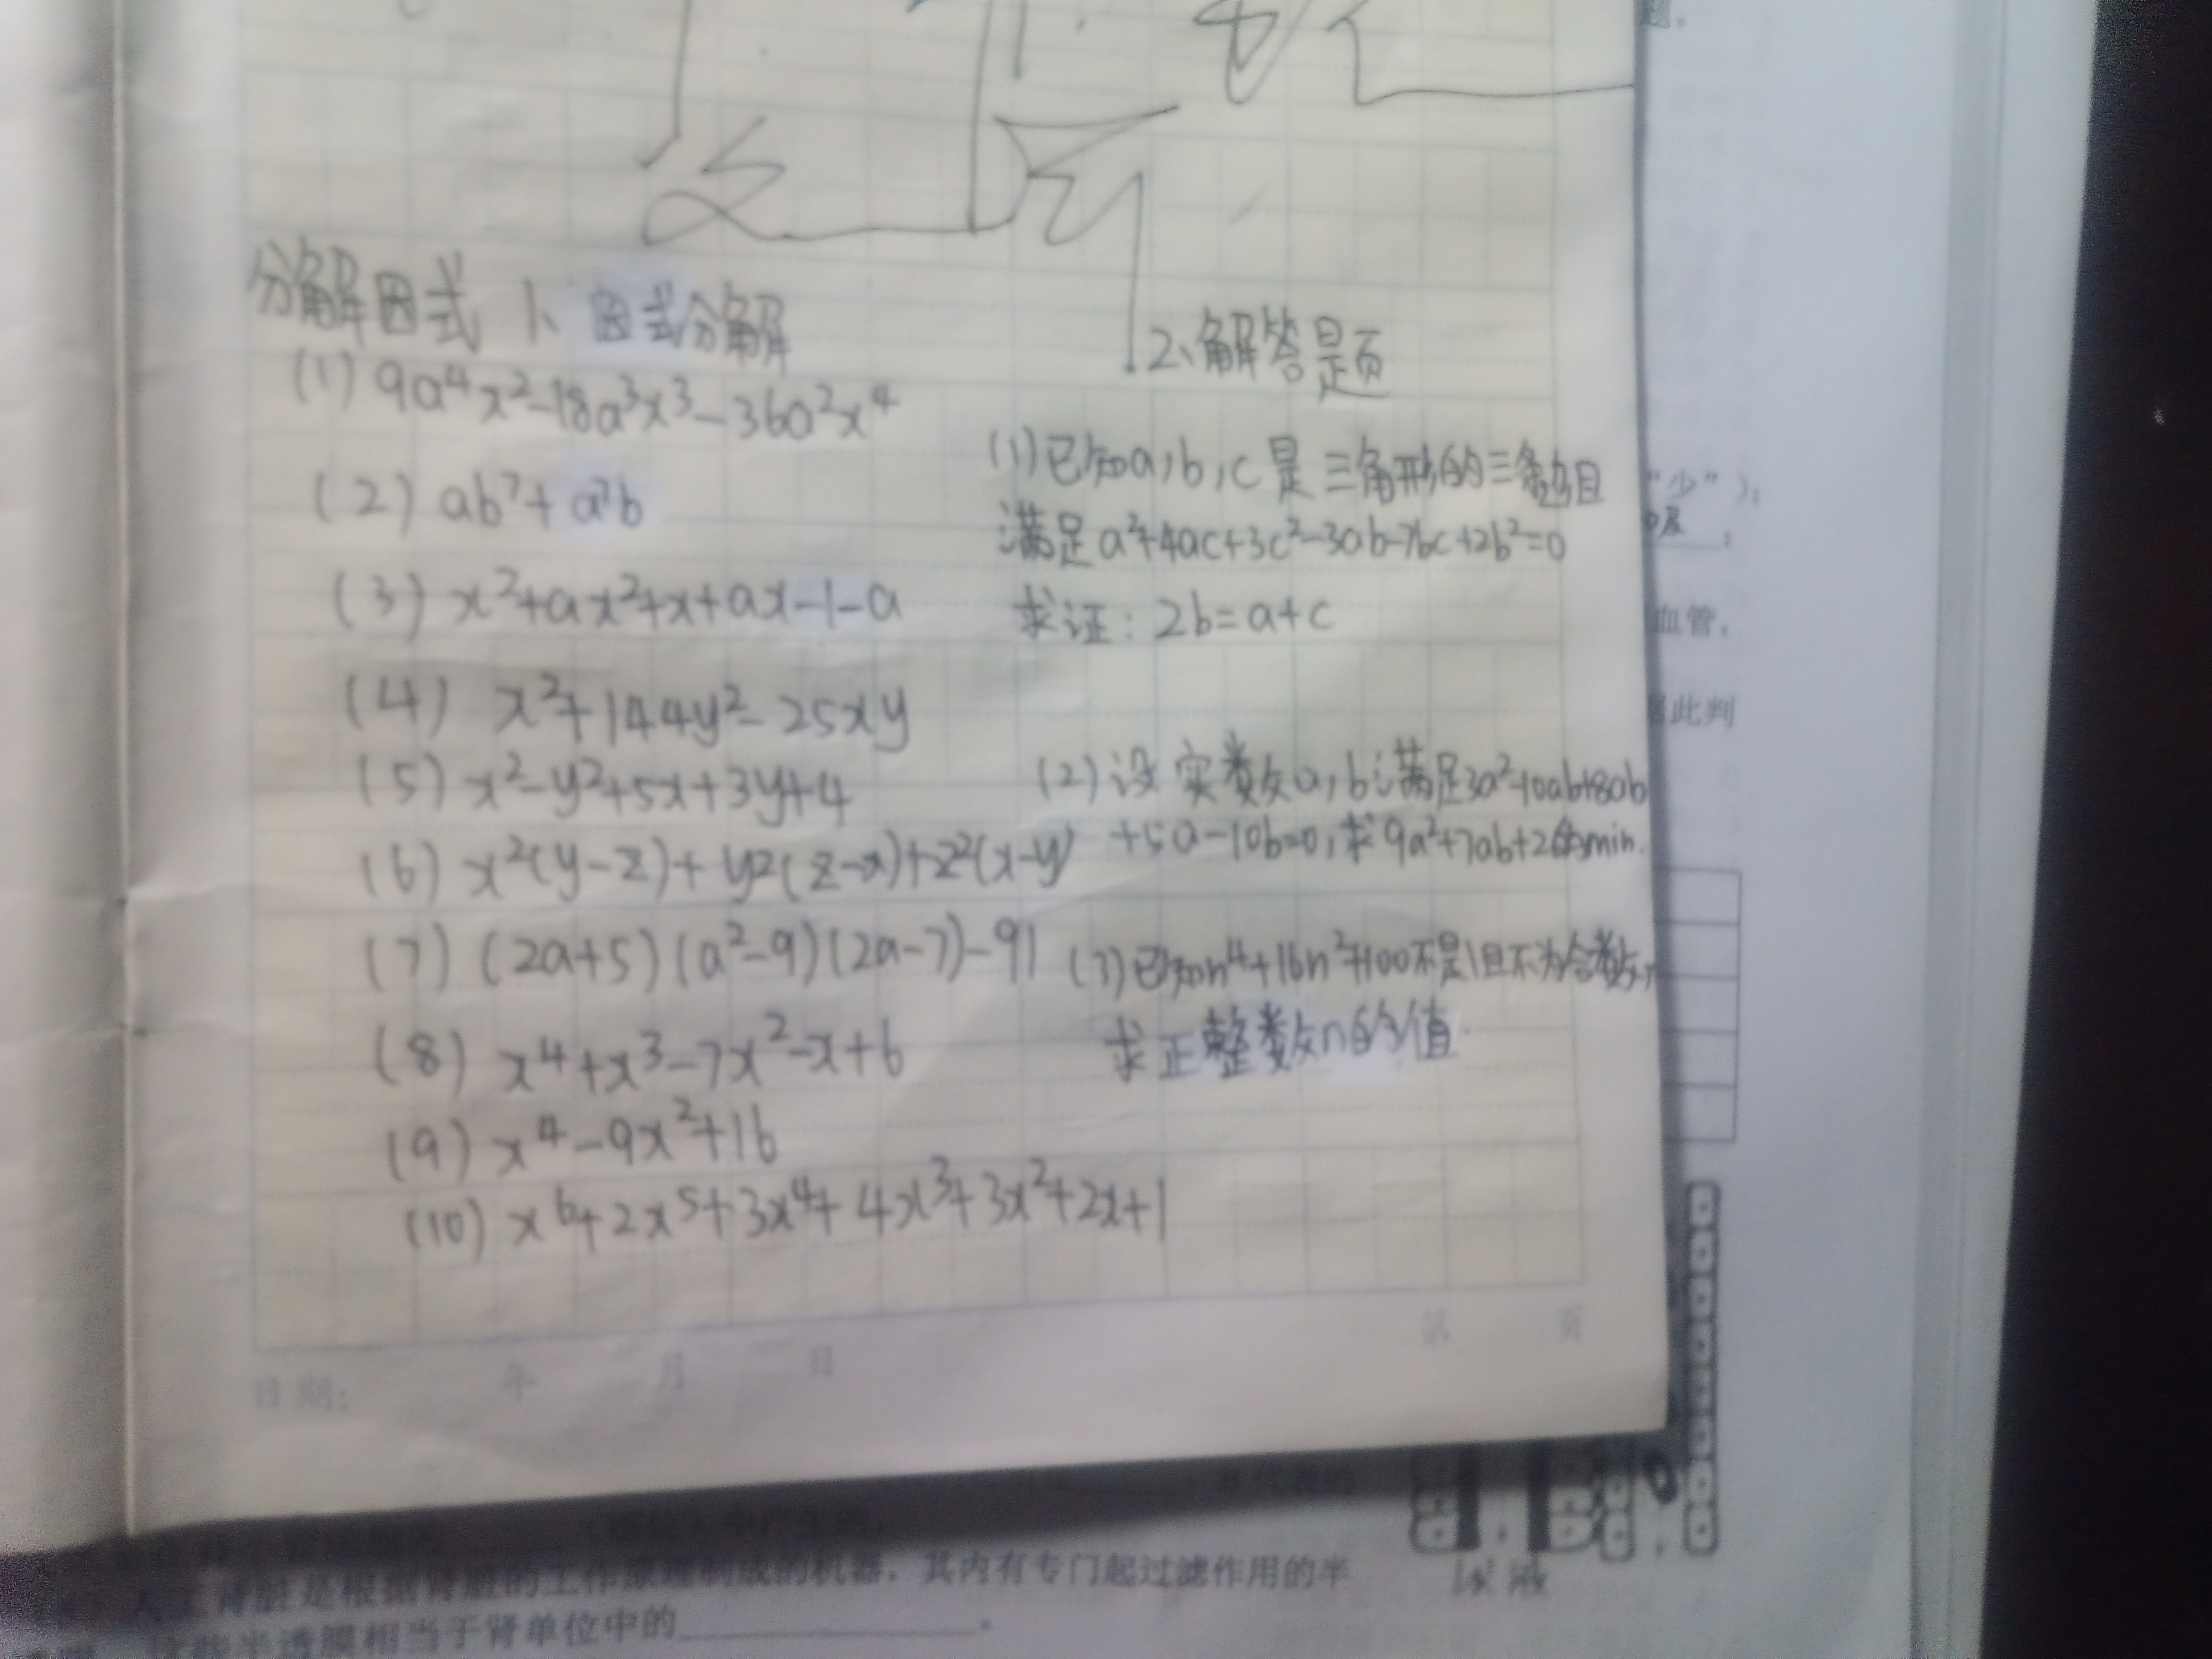 分解因式 1、因式分解
(1) 9a⁴x²-18a³x³-36a²x⁴
(2) ab⁷+a⁷b
(3) x²+ax²+x+ax-1-a
(4) x²+144y²-25xy
(5) x²-y²+5x+3y+4
(6) x²(y-z)+y²(z-x)+z²(x-y)
(7) (2a+5)(a²-9)(2a-7)-91
(8) x⁴+x³-7x²-x+6
(9) x⁴-9x²+16
(10) x⁶+2x⁵+3x⁴+4x³+3x²+2x+1
2、解答题
(1)已知a,b,c是三角形的三条边且
满足a²+4ac+3c²-3ab-7bc+2b²=0
求证：2b=a+c
(2)设实数a,b满足3a²-10ab+8ab
+5a-10b=0,求9a²+7ab+2的min.
(3)已知n⁴+16n²+100不是1且不为合数,
求正整数n的值.
日期： 年 月 日
第 页
题.
"少")；
血管，
此判
人工肾脏是根据肾脏的工作原理制成的机器，其内有专门起过滤作用的半
透膜相当于肾单位中的 。
尿液